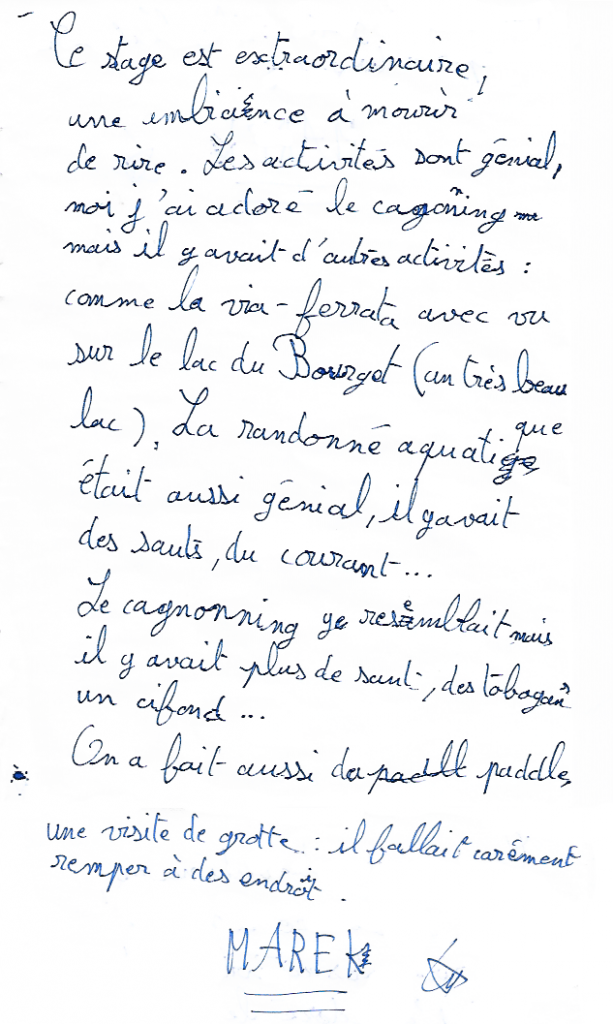 Ce stage est extraordinaire,
une imbiaence à mourir
de rire. Les activités sont génial,
moi j'ai adoré le cagoñning
mais il y avait d'autres activités :
comme la via-ferrata avec vu
sur le lac du Bourget (un très beau
lac). La randonné aquatique
était aussi génial, il y avait
des sauts, du courant...
Le cagnonning y resemblait mais
il y avait plus de saut, des tobogans
un cifond...
On a fait aussi du paddle,
une visite de grotte : il fallait carément
remper à des endroit.
MAREK